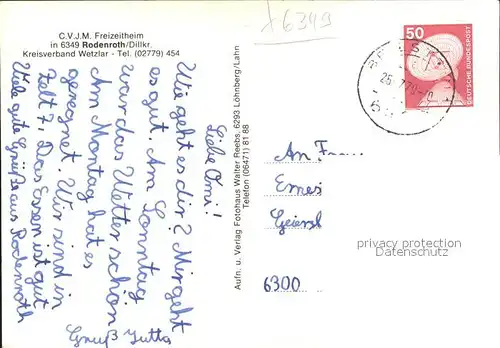 C.V.J.M. Freizeitheim
in 6349 Rodenroth/Dillkr.
Kreisverband Wetzlar - Tel. (02779) 454
6349
50
DEUTSCHE BUNDESPOST
Liebe Omi!
Wie geht es dir? Mir geht
es gut. Am Sonntag
war das Wetter schön
Am Montag hat es
geregnet. Wir sind in
Zelt 7. Das Essen ist gut
Viele gute Grüße aus Rodenroth
Gruß Jutta
Aufn. u. Verlag Fotohaus Walter Reebs, 6293 Löhnberg/Lahn
Telefon (06471) 81 88
An Fr
Ernes
Geierst
6300
privacy protection
Datenschutz